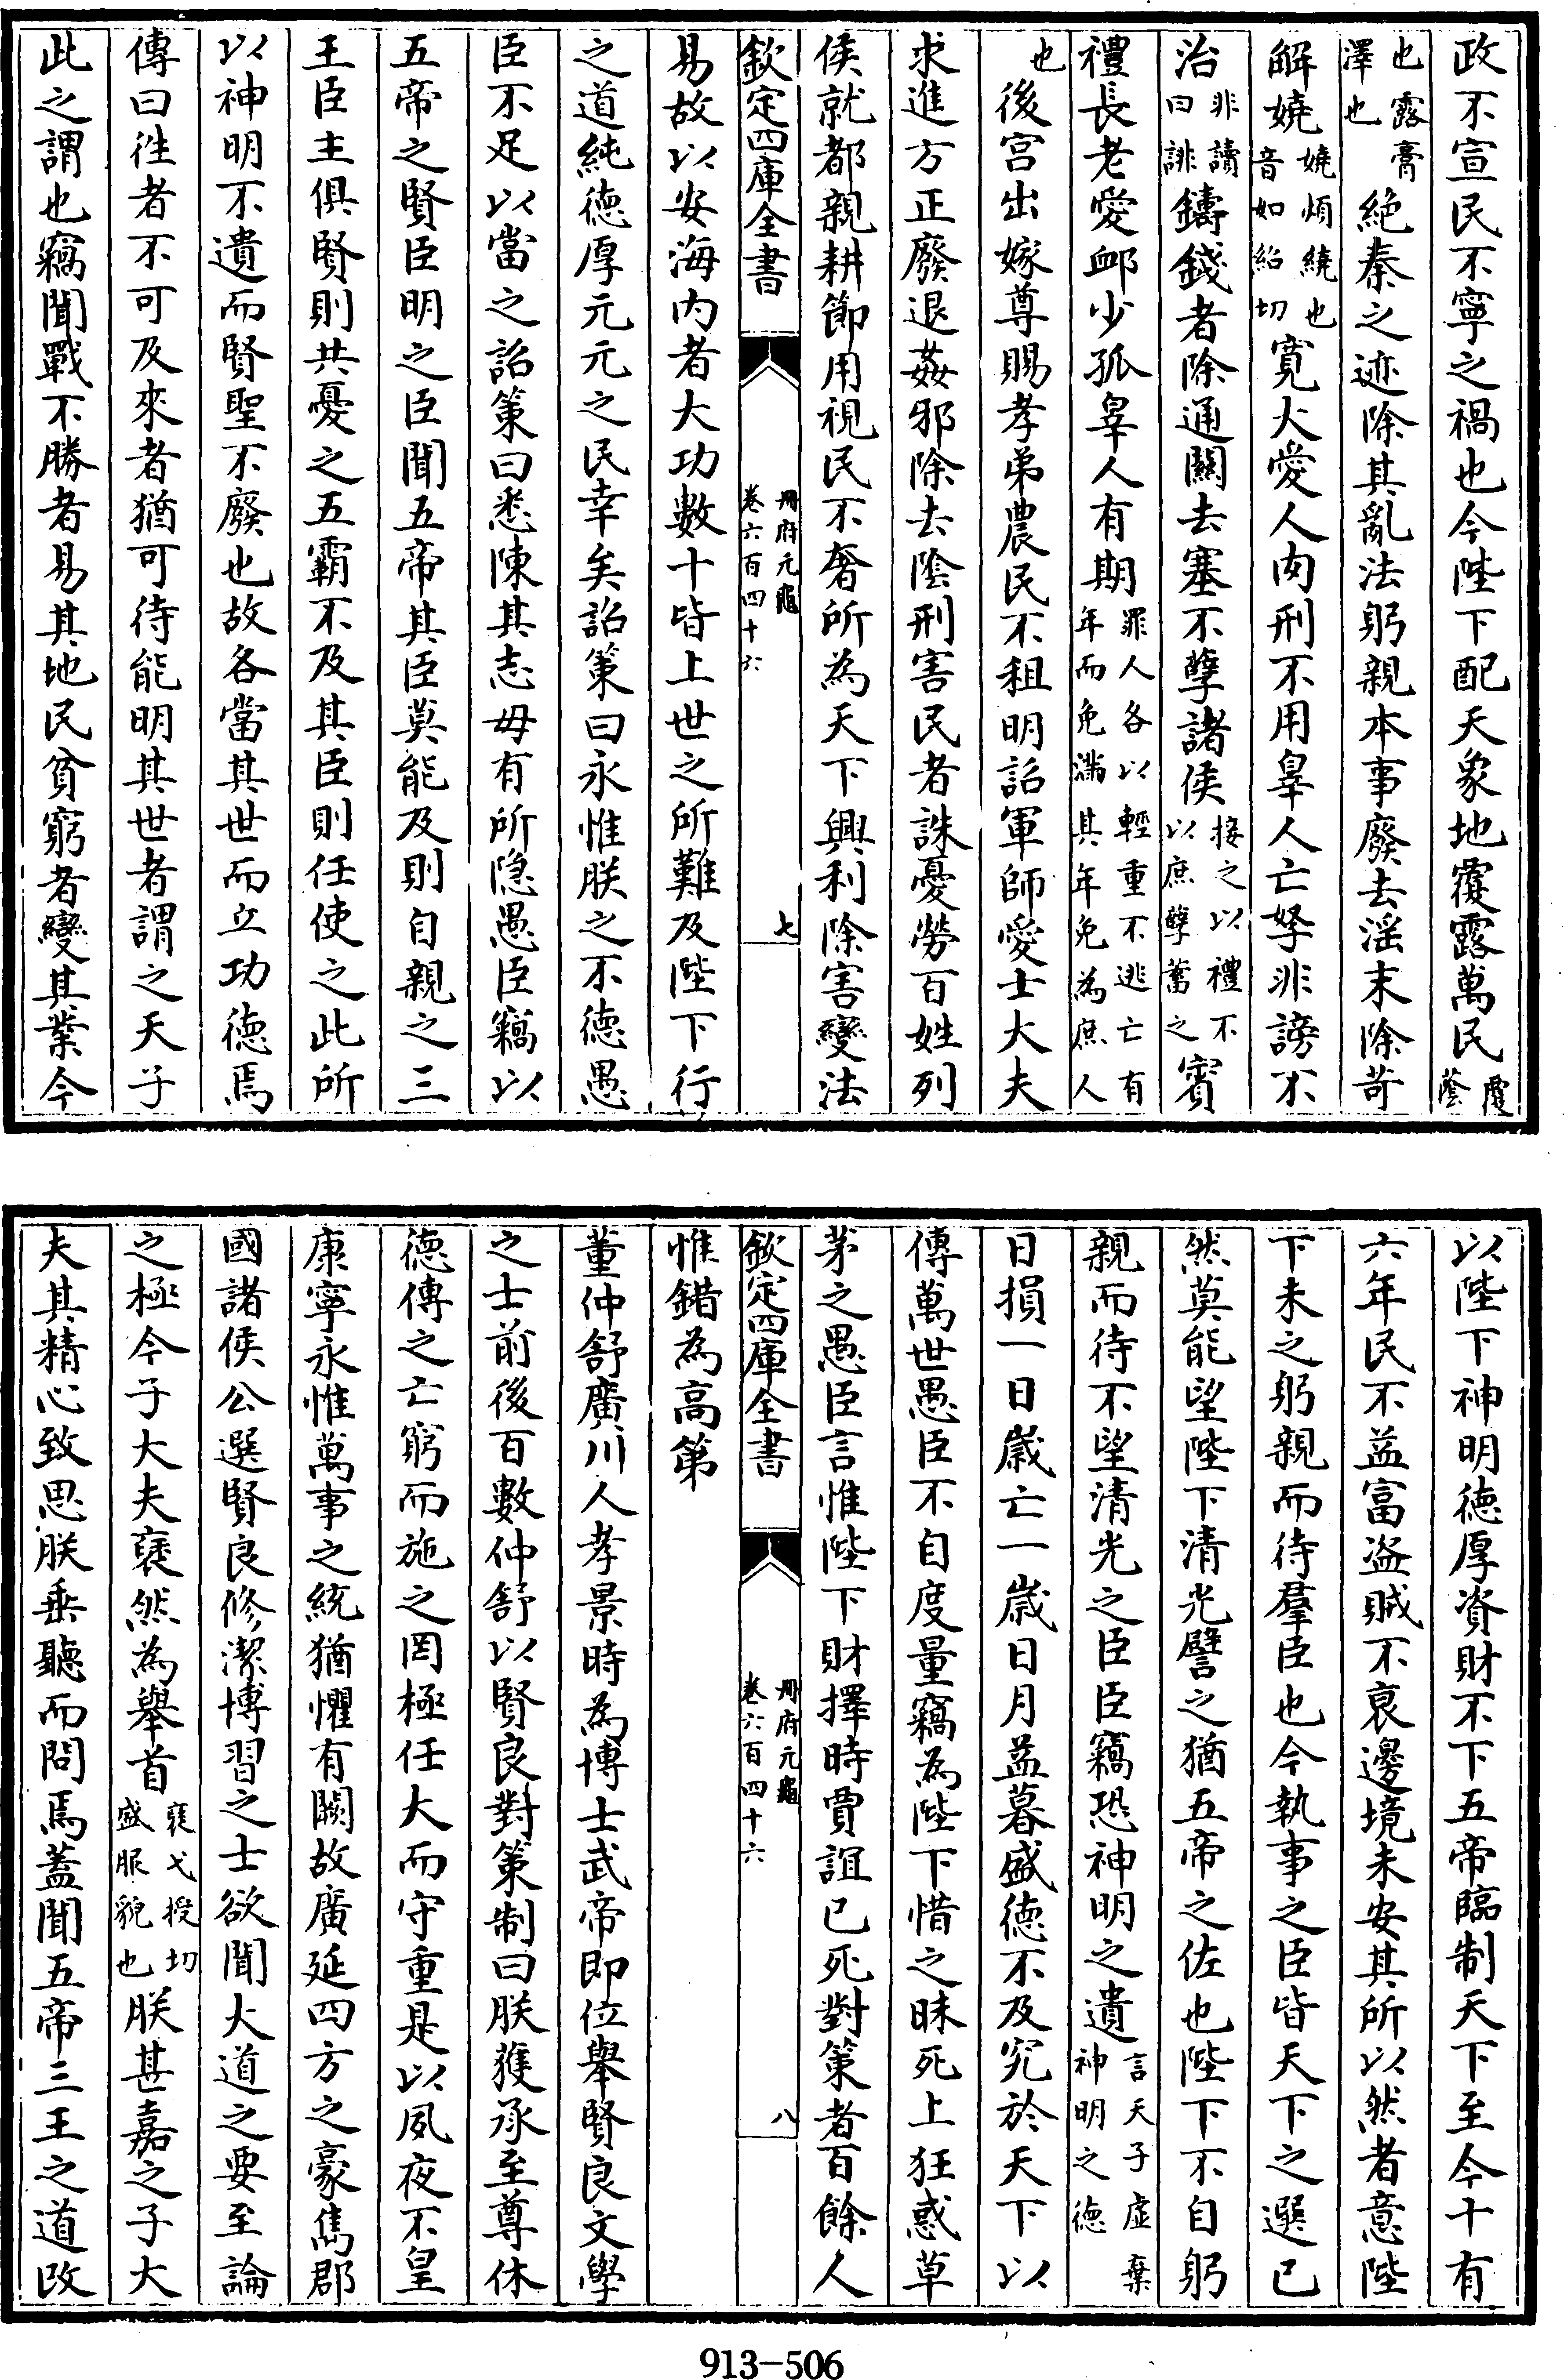 政不宣民不寧之禍也今陛下配天象地覆露萬民覆蔭
也露膏澤也絶秦之迹除其亂法躬親本事廢去淫末除苛
解嬈嬈煩繞也音如紹切寛大愛人肉刑不用辠人亡帑非謗不
治非讀曰誹鑄錢者除通關去塞不孽諸侯接之以禮不以庶孽蓄之賓
禮長老愛䘏少孤辠人有期罪人各以輕重不逃亡有年而免滿其年免為庶人
也後宮出嫁尊賜孝弟農民不租明詔軍師愛士大夫
求進方正廢退姦邪除去陰刑害民者誅憂勞百姓列
侯就都親耕節用視民不奢所為天下興利除害變法
欽定四庫全書
冊府元龜
卷六百四十六
七
易故以安海内者大功數十皆上世之所難及陛下行
之道純德厚元元之民幸矣詔策曰永惟朕之不德愚
臣不足以當之詔策曰悉陳其志毋有所隠愚臣竊以
五帝之賢臣明之臣聞五帝其臣莫能及則自親之三
王臣主俱賢則共憂之五霸不及其臣則任使之此所
以神明不遺而賢聖不廢也故各當其世而立功德焉
傳曰徃者不可及來者猶可待能明其世者謂之天子
此之謂也竊聞戰不勝者易其地民貧窮者變其業今
以陛下神明德厚資財不下五帝臨制天下至今十有
六年民不益富盗賊不衰邊境未安其所以然者意陛
下未之躬親而待羣臣也今執事之臣皆天下之選已
然莫能望陛下清光譬之猶五帝之佐也陛下不自躬
親而待不望清光之臣臣竊恐神明之遺言天子虚棄神明之德
日損一日歲亡一歲日月益暮盛德不及究於天下以
傳萬世愚臣不自度量竊為陛下惜之昧死上狂惑草
茅之愚臣言惟陛下財擇時賈誼已死對策者百餘人
欽定四庫全書
冊府元龜
卷六百四十六
八
惟錯為高第
董仲舒廣川人孝景時為博士武帝即位舉賢良文學
之士前後百數仲舒以賢良對策制曰朕獲承至尊休
德傳之亡窮而施之罔極任大而守重是以夙夜不皇
康寧永惟萬事之統猶懼有闕故廣延四方之豪雋郡
國諸侯公選賢良修潔博習之士欲聞大道之要至論
之極今子大夫裦然為舉首裦弋授切盛服貌也朕甚嘉之子大
夫其精心致思朕垂聽而問焉蓋聞五帝三王之道改
913-506